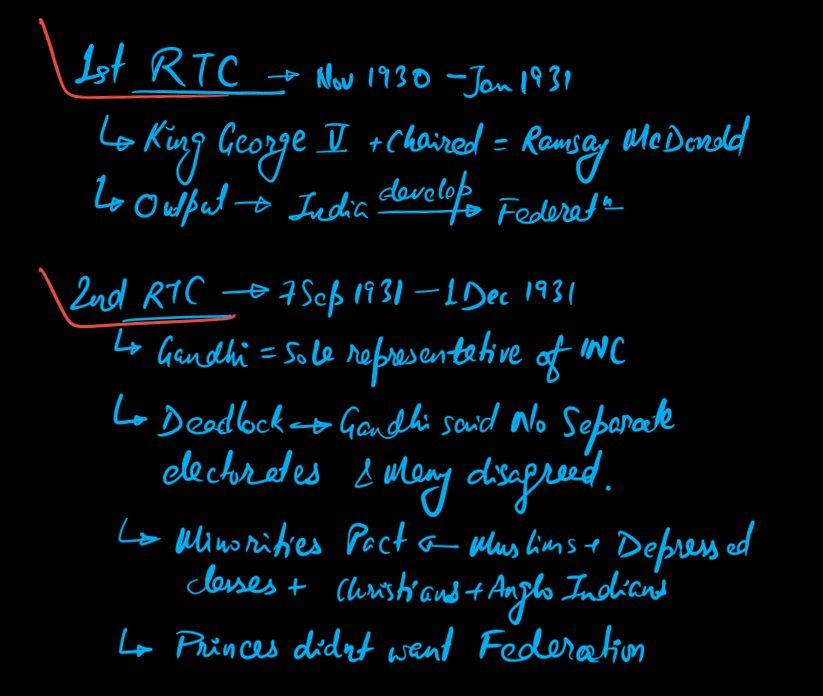 1st RTC → Nov 1930 - Jan 1931
↳ King George V + Chaired = Ramsay McDonald
↳ Output → India develop → Federatn
2nd RTC → 7 Sep 1931 - 1 Dec 1931
↳ Gandhi = Sole representative of INC
↳ Deadlock → Gandhi said No Separate
electorates & Many disagreed.
↳ Minorities Pact ← Muslims + Depressed
classes + Christians + Anglo Indians
↳ Princes didnt want Federation